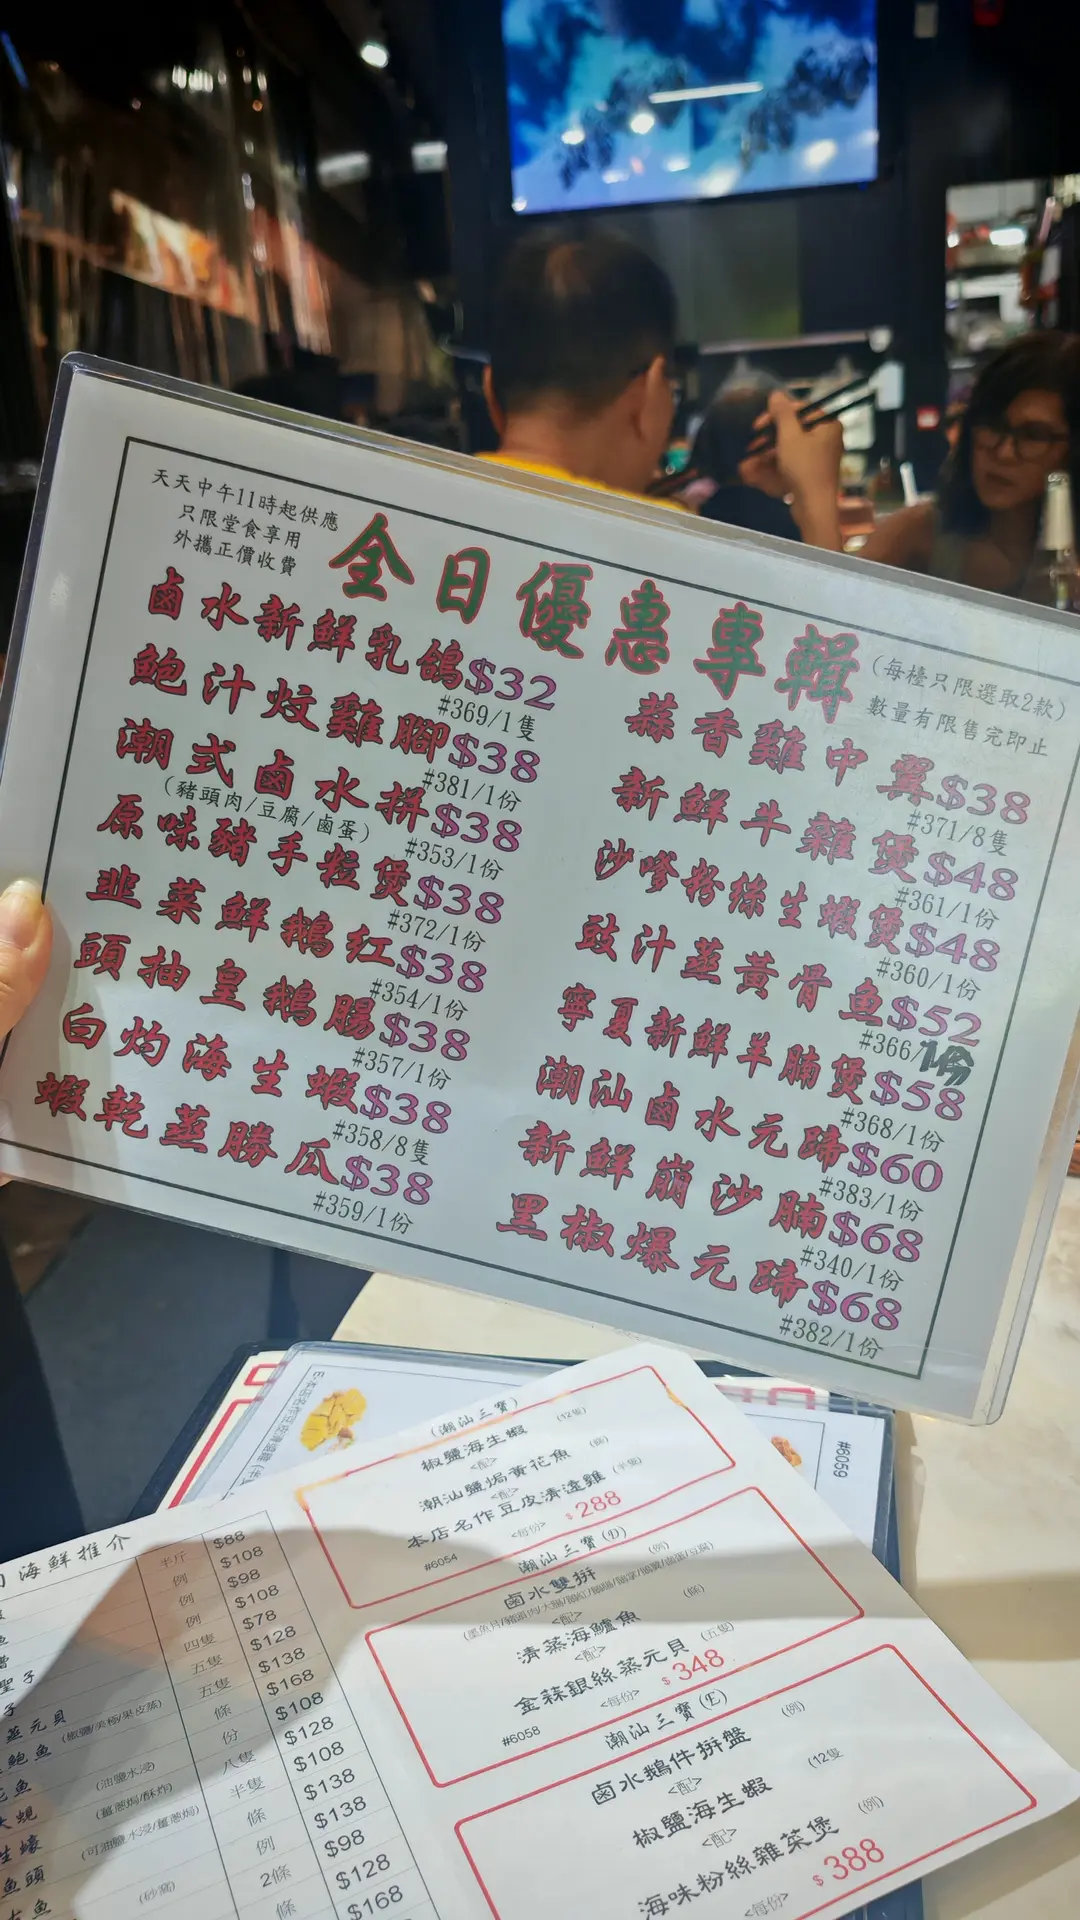 天天中午11時起供應
只限堂食享用
外攜正價收費
全日優惠專輯
(每檯只限選取2款)
數量有限售完即止
鹵水新鮮乳鴿$32
#369/1隻
鮑汁炆雞腳$38
#381/1份
潮式鹵水拼$38
(豬頭肉/豆腐/鹵蛋)
#353/1份
原味豬手粒煲$38
#372/1份
韭菜鮮鵝紅$38
#354/1份
頭抽皇鵝腸$38
#357/1份
白灼海生蝦$38
#358/8隻
蝦乾蒸勝瓜$38
#359/1份
蒜香雞中翼$38
#371/8隻
新鮮牛雜煲$48
#361/1份
沙嗲粉絲生蝦煲$48
#360/1份
豉汁蒸黃骨魚$52
#366/1份
寧夏新鮮羊腩煲$58
#368/1份
潮汕鹵水元蹄$60
#383/1份
新鮮崩沙腩$68
#340/1份
黑椒爆元蹄$68
#382/1份
#6059
(潮汕三寶)
椒鹽海生蝦 (12隻)
<配>
潮汕鹽焗黃花魚 (條)
<配>
本店名作豆皮清遠雞 (半隻)
<每份> $288
#6054
潮汕三寶(D)
鹵水雙拼 (例)
<配>
清蒸海鱸魚 (條)
<配>
金蒜銀絲蒸元貝 (五隻)
<每份> $348
#6058
潮汕三寶(E)
鹵水鵝件拼盤 (例)
<配>
椒鹽海生蝦 (12隻
<配>
海味粉絲雜菜煲 (例)
<每份> $388
海鮮推介
半斤 $88
例 $108
例 $98
四隻 $108
聖子 五隻 $78
五隻 $128
蒸元貝 條 $138
鮑魚 (椒鹽/美極/果皮蒸) 份 $168
魚 八隻 $108
蜆 (油鹽水浸) 半隻 $128
生蠔 (薑蔥焗/酥炸) 條 $108
魚頭 (可油鹽水浸/薑蔥焗) 例 $138
魚 2條 $138
(砂窩) 條 $98
$128
$168